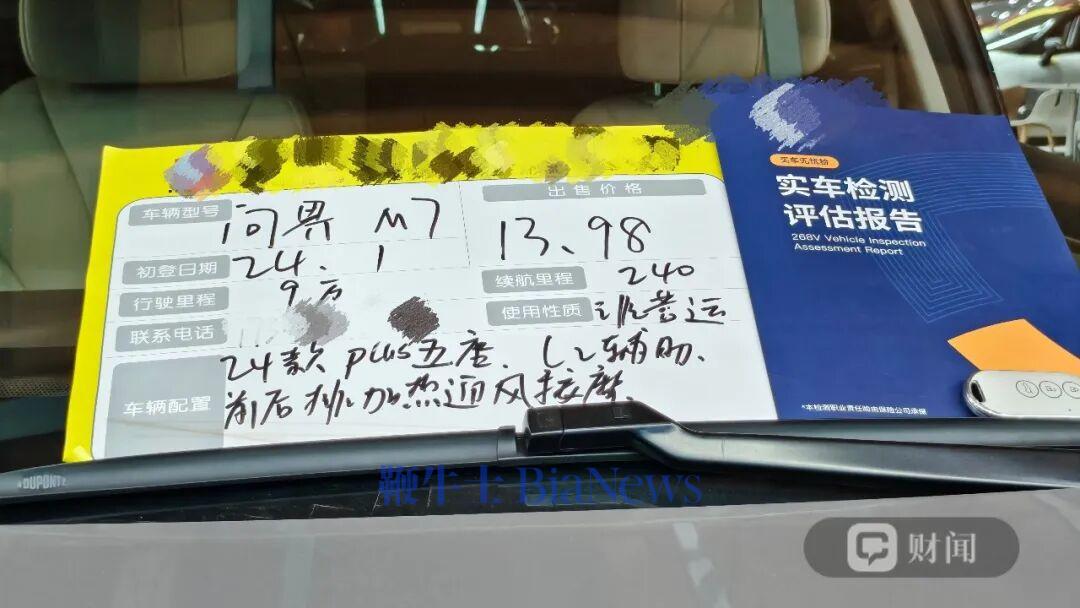 车辆型号 问界 M7
出售价格
13、98
初登日期 24、1
续航里程 240
行驶里程 9万
使用性质 非营运
联系电话
车辆配置
24款 plus五座、L2辅助、
前后排加热通风按摩、
实车无忧检
实车检测
评估报告
268V Vehicle Inspection
Assessment Report
*本检测职业责任险由保险公司承保
DUPONT
鞭牛士 BiaNews
财闻